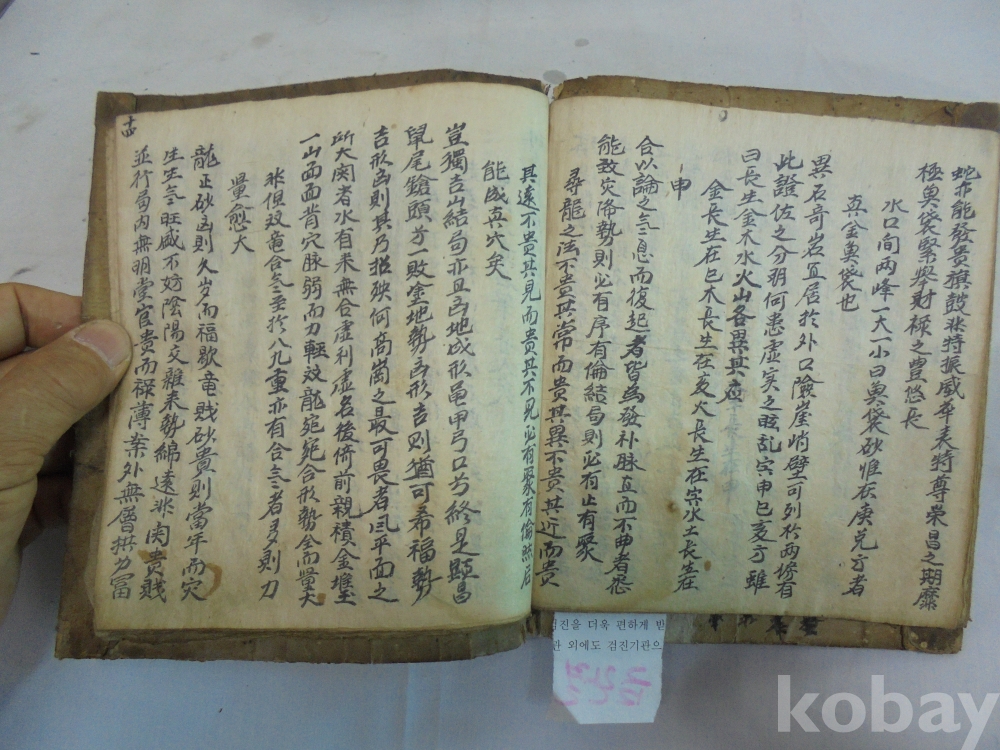 能發貴旗鼓非特振威卒夫特尊榮昌之期
極魚袋緊拳財祿之豊悠長
水口間兩峰一大一小曰魚袋砂惟在庚兌方者
真金魚袋也
異石奇岩宜居於外口險崖峭壁可列於兩傍有
此證佐之分明何患虛实之眩乱寅申巳亥方雖
曰長生金木水火山各異其应
金長生在巳木長生在亥火長生在寅水土長生在
申
合以論之气息而復起者皆為發补脉直而不曲者恐
能致灾降勢則必有序有倫結局則必有止有聚
尋龍之法不貴其常而貴其異不貴其近而貴
其遠不貴其見而貴其不見必有聚有倫然后
能成真穴矣
豈獨吉山結局亦且凶地成形龟甲弓口兮終是顯昌
鼠尾鎗頭兮一敗塗地勢凶形吉則猶可希福勢
吉形凶則其乃招殃何高崗之最可畏者風平面之
所大関者水有来無合虛利虛名後倚前親積金堆玉
一山面面背穴脉弱而力輕双龍宛宛合形勢全而量大
非但双竜合气至於八九重亦有合气者多則力
量愈大
龍正砂凶則久岁而福歇竜賎砂貴則當年而穴
生生气旺咸不妨陰陽交雜来勢綿遠非関貴賤
並行局内無明堂官貴而祿薄案外無層拱力冨
검진을 더욱 편하게 받
관 외에도 검진기관으
kobay